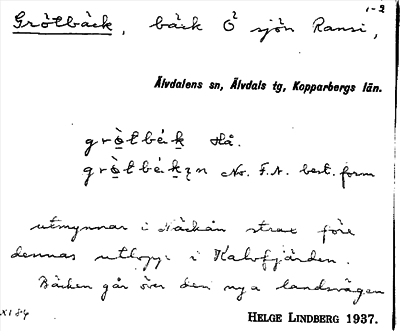 1-2
Grötbäck, bäck Ö² sjön Ransi,
Älvdalens sn, Älvdals tg, Kopparbergs län.
grò̱tbèḵ Hå.
grò̱tbèḵın No. F.A. best. form
utmynnar i Näckån strax före
dennas utlopp i Kalvfjärden.
Bäcken går över den nya landsvägen
XI 84
HELGE LINDBERG 1937.